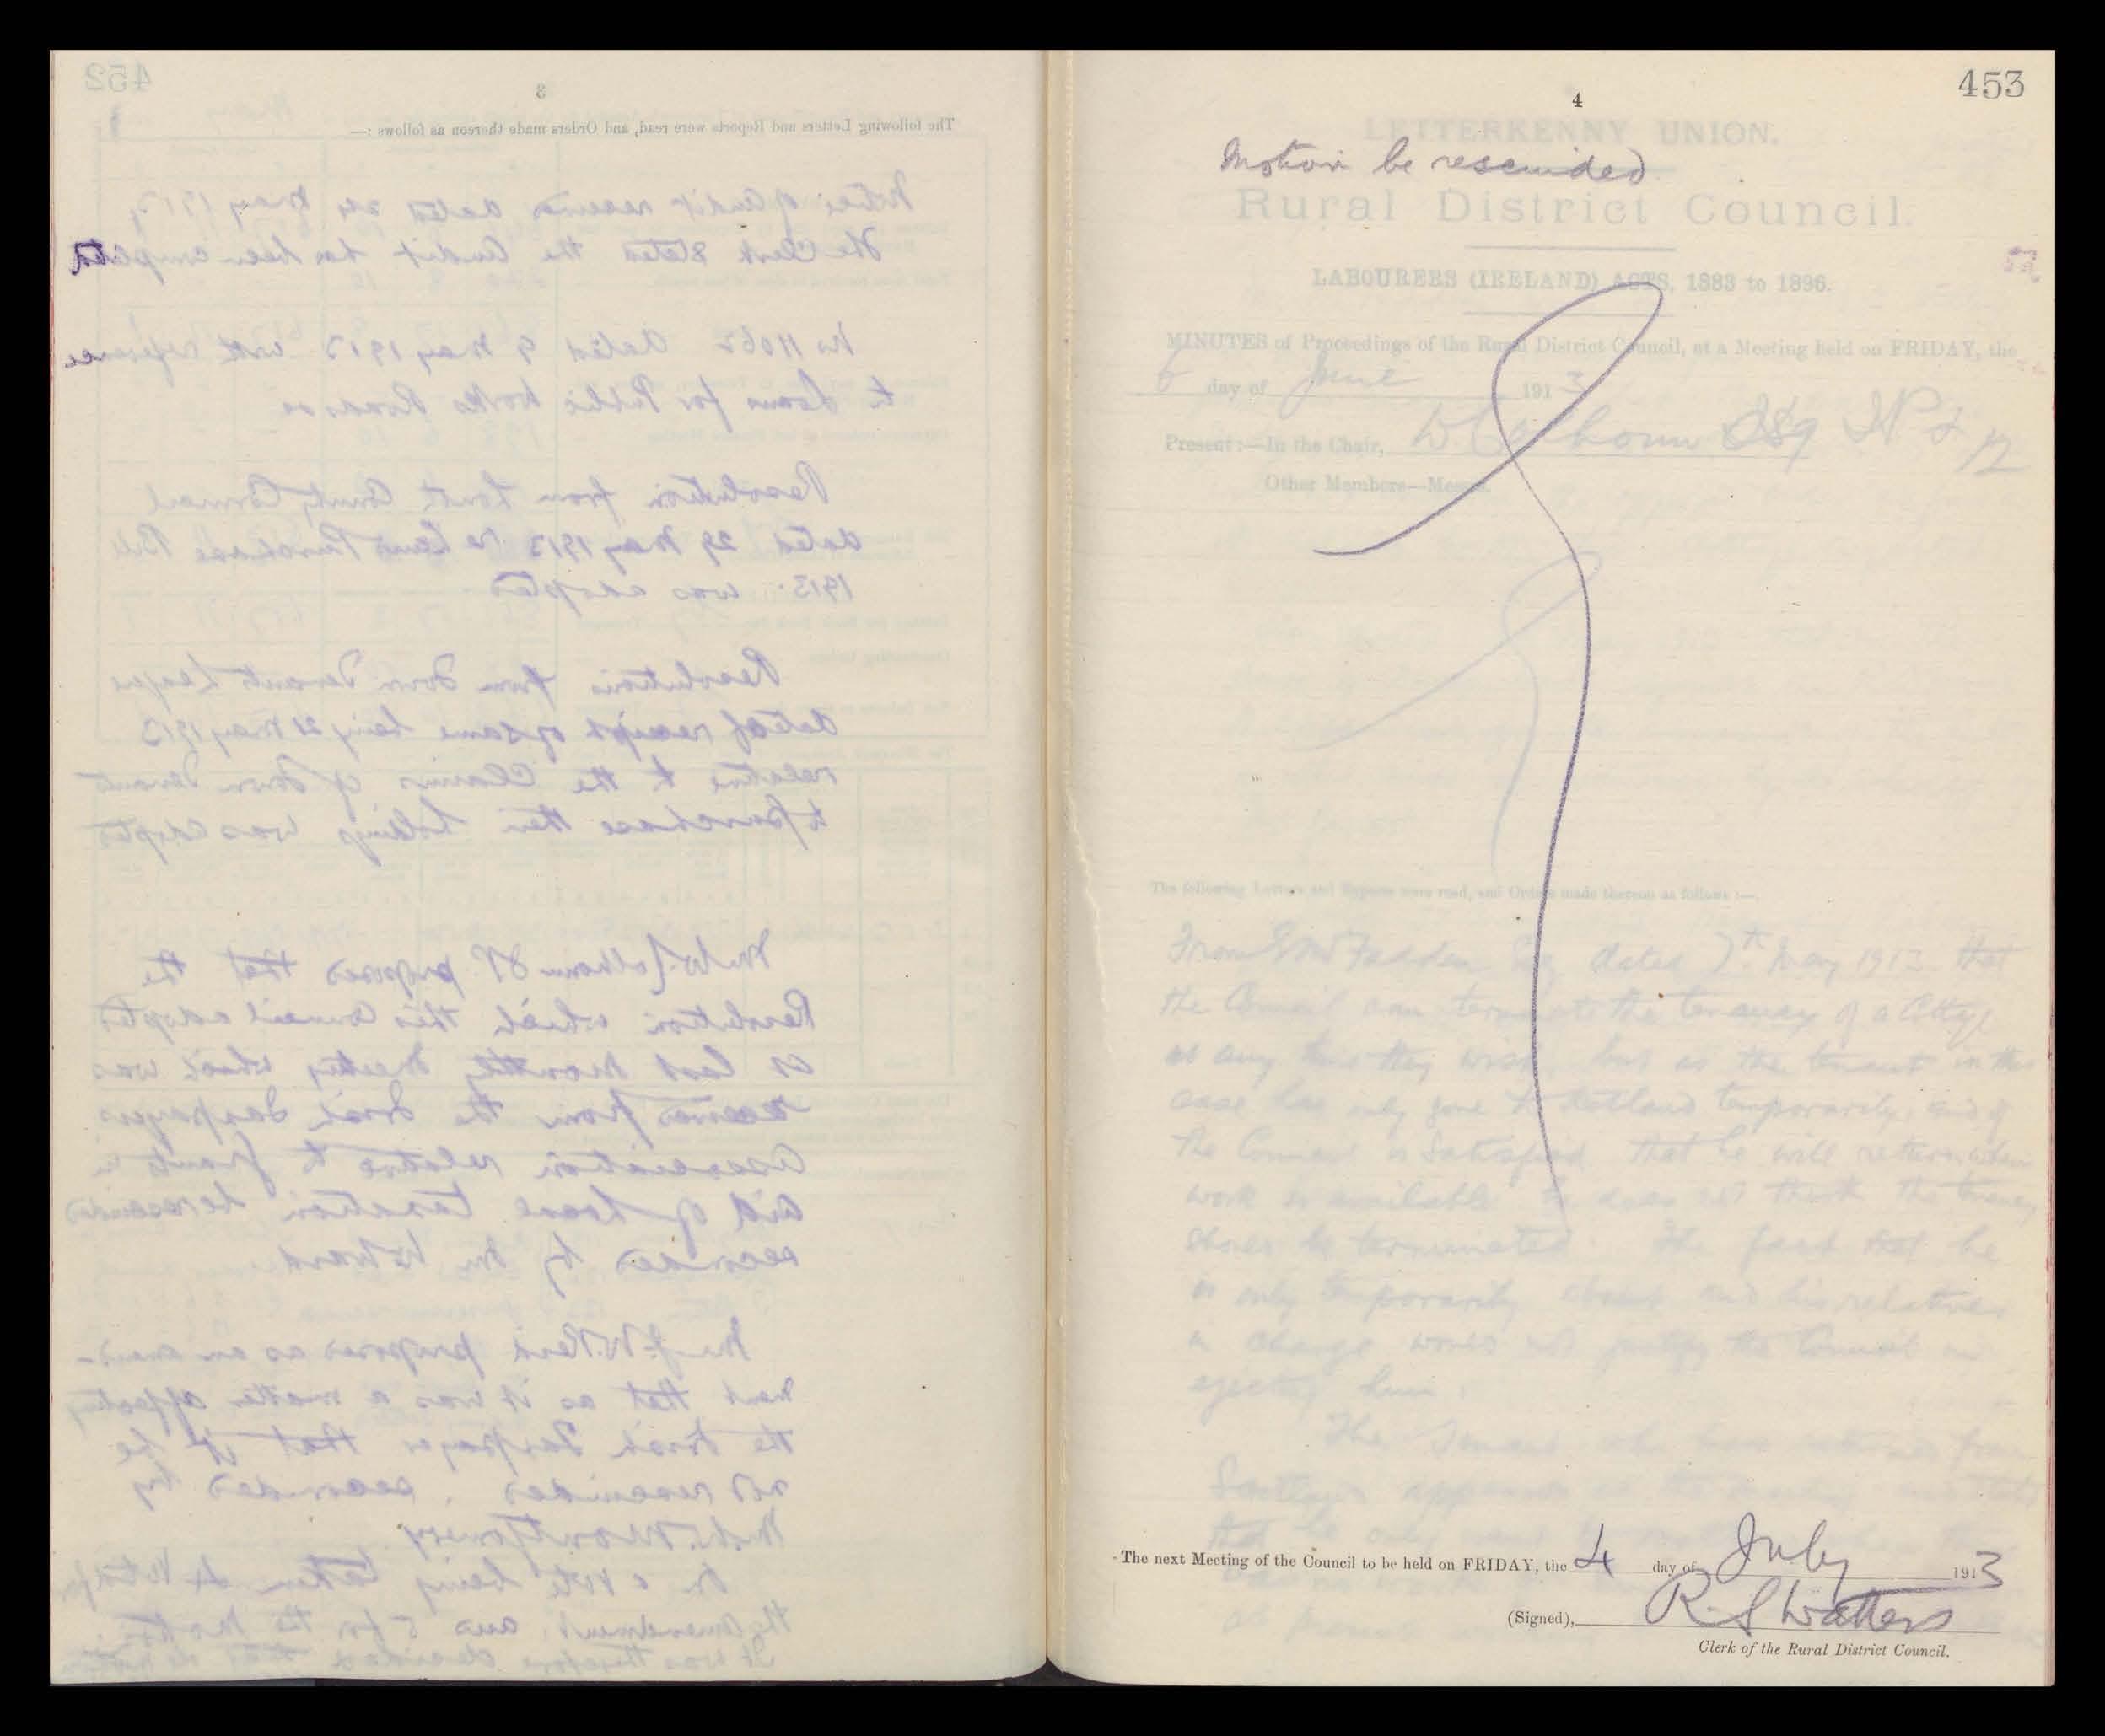 452
3
The following Letters and Reports were read, and Orders made thereon as follows :—
Notice of Audit received dated 24 May 1913
The Clerk stated the Audit had been completed
No 11062 dated 9 May 1913 with reference
to Loans for Public Works Roads
Resolution from County Council
dated 29 May 1913 re Land Purchase Bill
1913 was adopted
Resolutions from Town Tenants League
date of receipt of same being 21 May 1913
relative to the Claims of Town Tenants
to purchase their holdings was adopted
Mr W. Colhoun JP proposed that the
Resolution which this Council adopted
at last Monthly Meeting which was
received from the Irish Taxpayers
Association relative to grants in
aid of Local taxation be rescinded
seconded by Mr McWard
Mr J. W. Reid proposed as an amend-
ment that as it was a matter affecting
the Irish Taxpayer that it be
not rescinded, seconded by
Mr Montgomery
On a vote being taken 4 voted for
the Amendment and 5 for the Motion
It was therefore decided that
453
4
Motion be rescinded
LETTERKENNY UNION.
Rural District Council.
LABOURERS (IRELAND) ACTS, 1883 to 1896.
MINUTES of Proceedings of the Rural District Council, at a Meeting held on FRIDAY, the
6 day of June 1913
Present :—In the Chair, W. Colhoun Esq JP
Other Members—Messrs.
The following Letters and Reports were read, and Orders made thereon as follows :—
From McFadden Esq dated 7th May 1913 that
the Council can terminate the tenancy of a Cottage
at any time they wish but as the tenant in this
case has only gone to Scotland temporarily, and if
the Council is satisfied that he will return when
work is available he does not think the tenancy
should be terminated. The fact that he
is only temporarily absent and his relatives
in charge would not justify the Council in
ejecting him.
The Tenant who had returned from
Scotland appeared at the meeting and
The next Meeting of the Council to be held on FRIDAY, the 4 day of July 1913
(Signed), R. S Watters
Clerk of the Rural District Council.